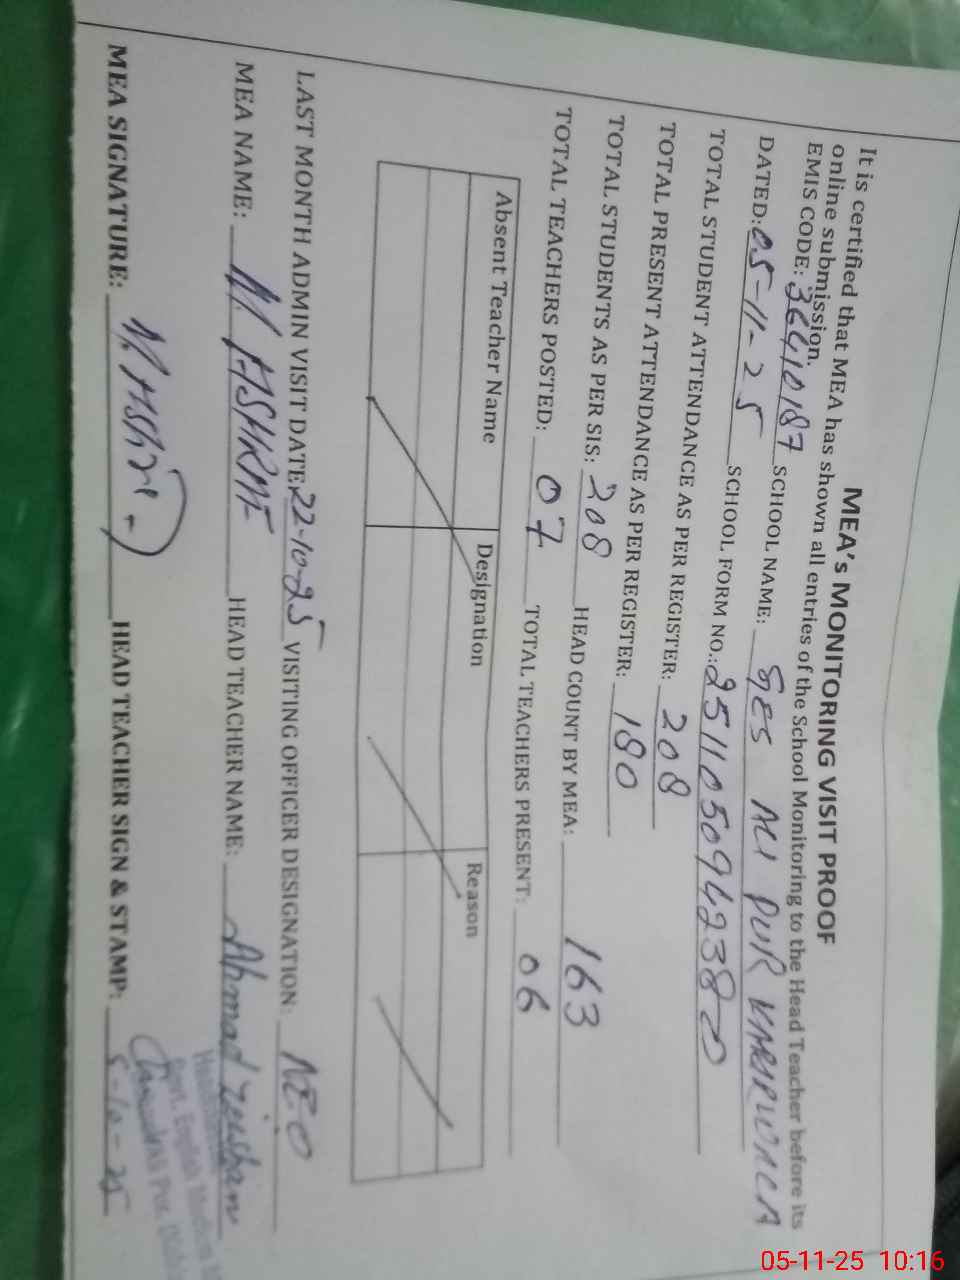 MEA's MONITORING VISIT PROOF
It is certified that MEA has shown all entries of the School Monitoring to the Head Teacher before its
online submission.
EMIS CODE: 36410187 SCHOOL NAME: GES ALI PUR
DATED: 05-11-25 SCHOOL FORM NO.: 2511050942380
TOTAL STUDENT ATTENDANCE AS PER REGISTER: 208
TOTAL PRESENT ATTENDANCE AS PER REGISTER: 180
TOTAL STUDENTS AS PER SIS: 208 HEAD COUNT BY MEA: 163
TOTAL TEACHERS POSTED: 07 TOTAL TEACHERS PRESENT: 06
Absent Teacher Name Designation Reason
LAST MONTH ADMIN VISIT DATE 22-10-25 VISITING OFFICER DESIGNATION: AEO
MEA NAME: M. HEAD TEACHER NAME: Ahmad Zeeshan
MEA SIGNATURE: HEAD TEACHER SIGN & STAMP: 5-10-25
Govt. English
05-11-25 10:16